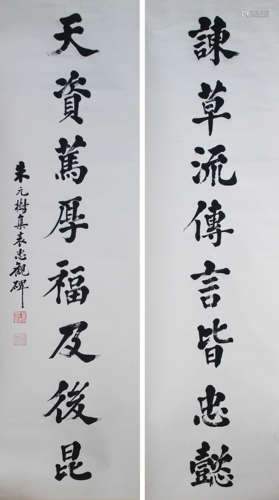 諫草流傳言皆忠懿
天資篤厚福及後昆
朱元樹集表忠觀碑